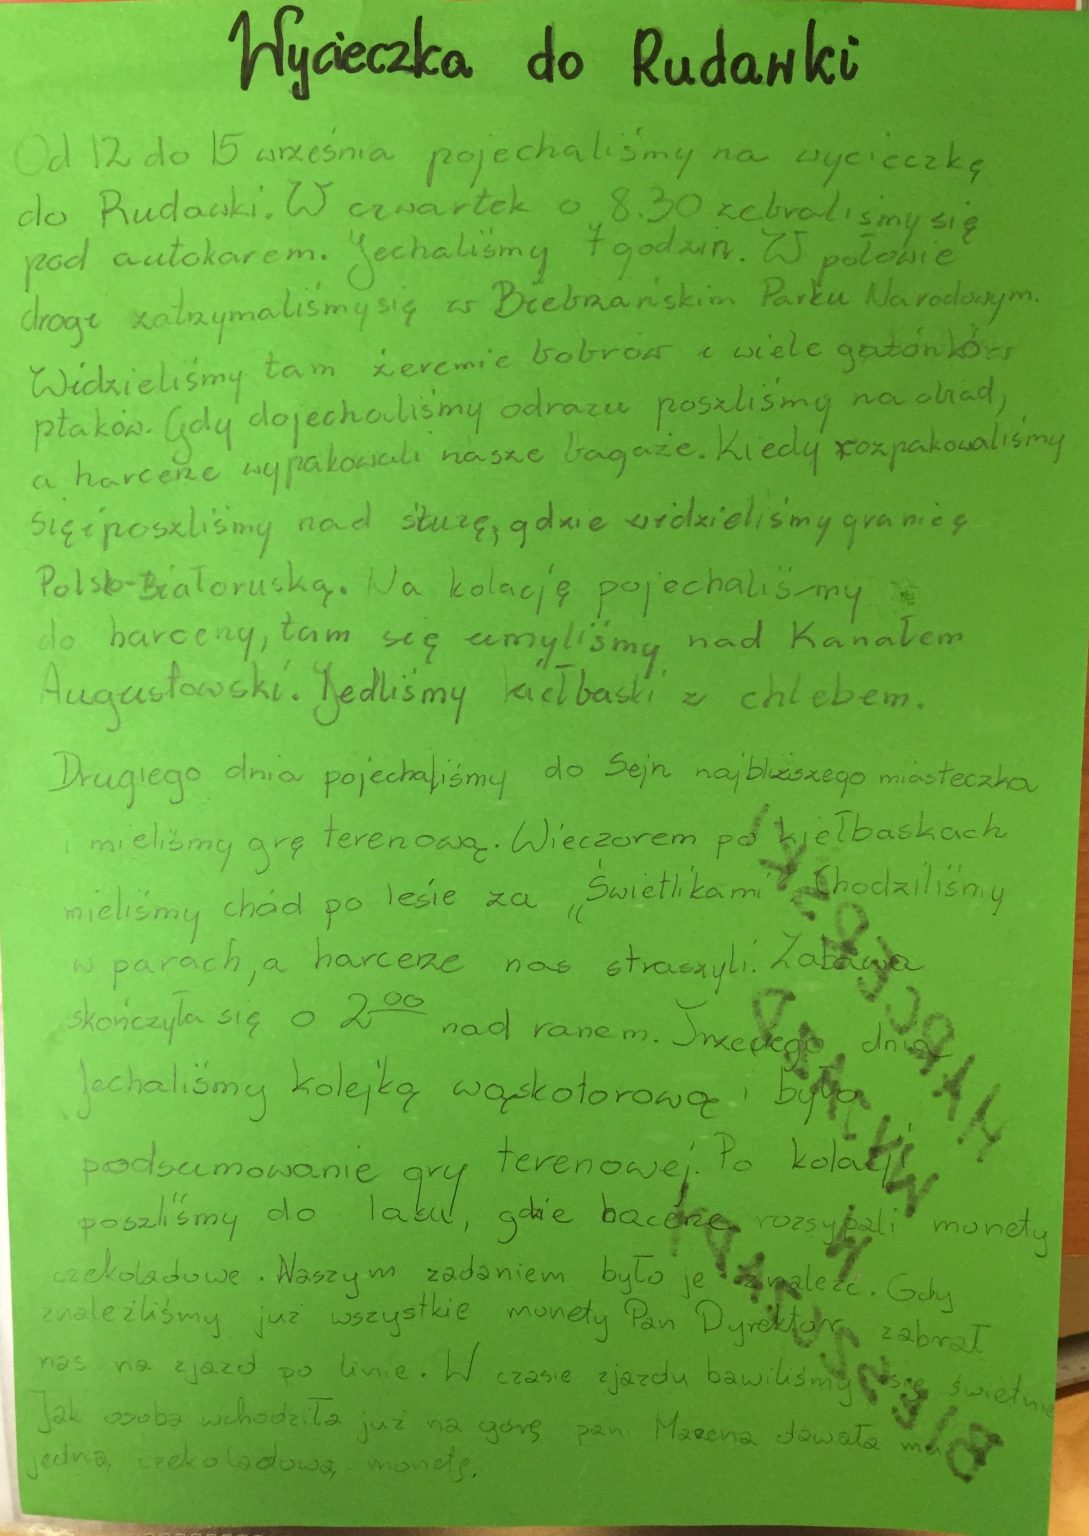 Wycieczka do Rudawki
Od 12 do 15 września pojechaliśmy na wycieczkę
do Rudawki. W czwartek o 8.30 zebraliśmy się
pod autokarem. Jechaliśmy 7 godzin. W połowie
drogi zatrzymaliśmy się w Biebrzańskim Parku Narodowym.
Widzieliśmy tam żeremie bobrów i wiele gatónków
ptaków. Gdy dojechaliśmy odrazu poszliśmy na obiad,
a harcerze wypakowali nasze bagaże. Kiedy rozpakowaliśmy
się i poszliśmy nad śluzę, gdzie widzieliśmy granicę
Polsko-Białoruską. Na kolację pojechaliśmy
do harceny, tam się umyliśmy nad Kanałem
Augustowski. Jedliśmy kiełbaski z chlebem.
Drugiego dnia pojechaliśmy do Sejn najbliższego miasteczka
i mieliśmy grę terenową. Wieczorem po kiełbaskach
mieliśmy chód po lesie za „Świetlikami" Chodziliśmy
w parach, a harcerze nas straszyli. Zabawa
skończyła się o 2⁰⁰ nad ranem. Trzeciego dnia
Jechaliśmy kolejką wąskotorową i było
podsumowanie gry terenowej. Po kolacji
poszliśmy do lasu, gdzie harcerze rozsypali monety
czekoladowe. Naszym zadaniem było je znaleźć. Gdy
znaleźliśmy już wszystkie monety Pan Dyrektor zabrał
nas na zjazd po linie. W czasie zjazdu bawiliśmy się świetnie
Jak osoba wchodziła już na górę pan Marena dawała mu
jedną czekoladową monetę.